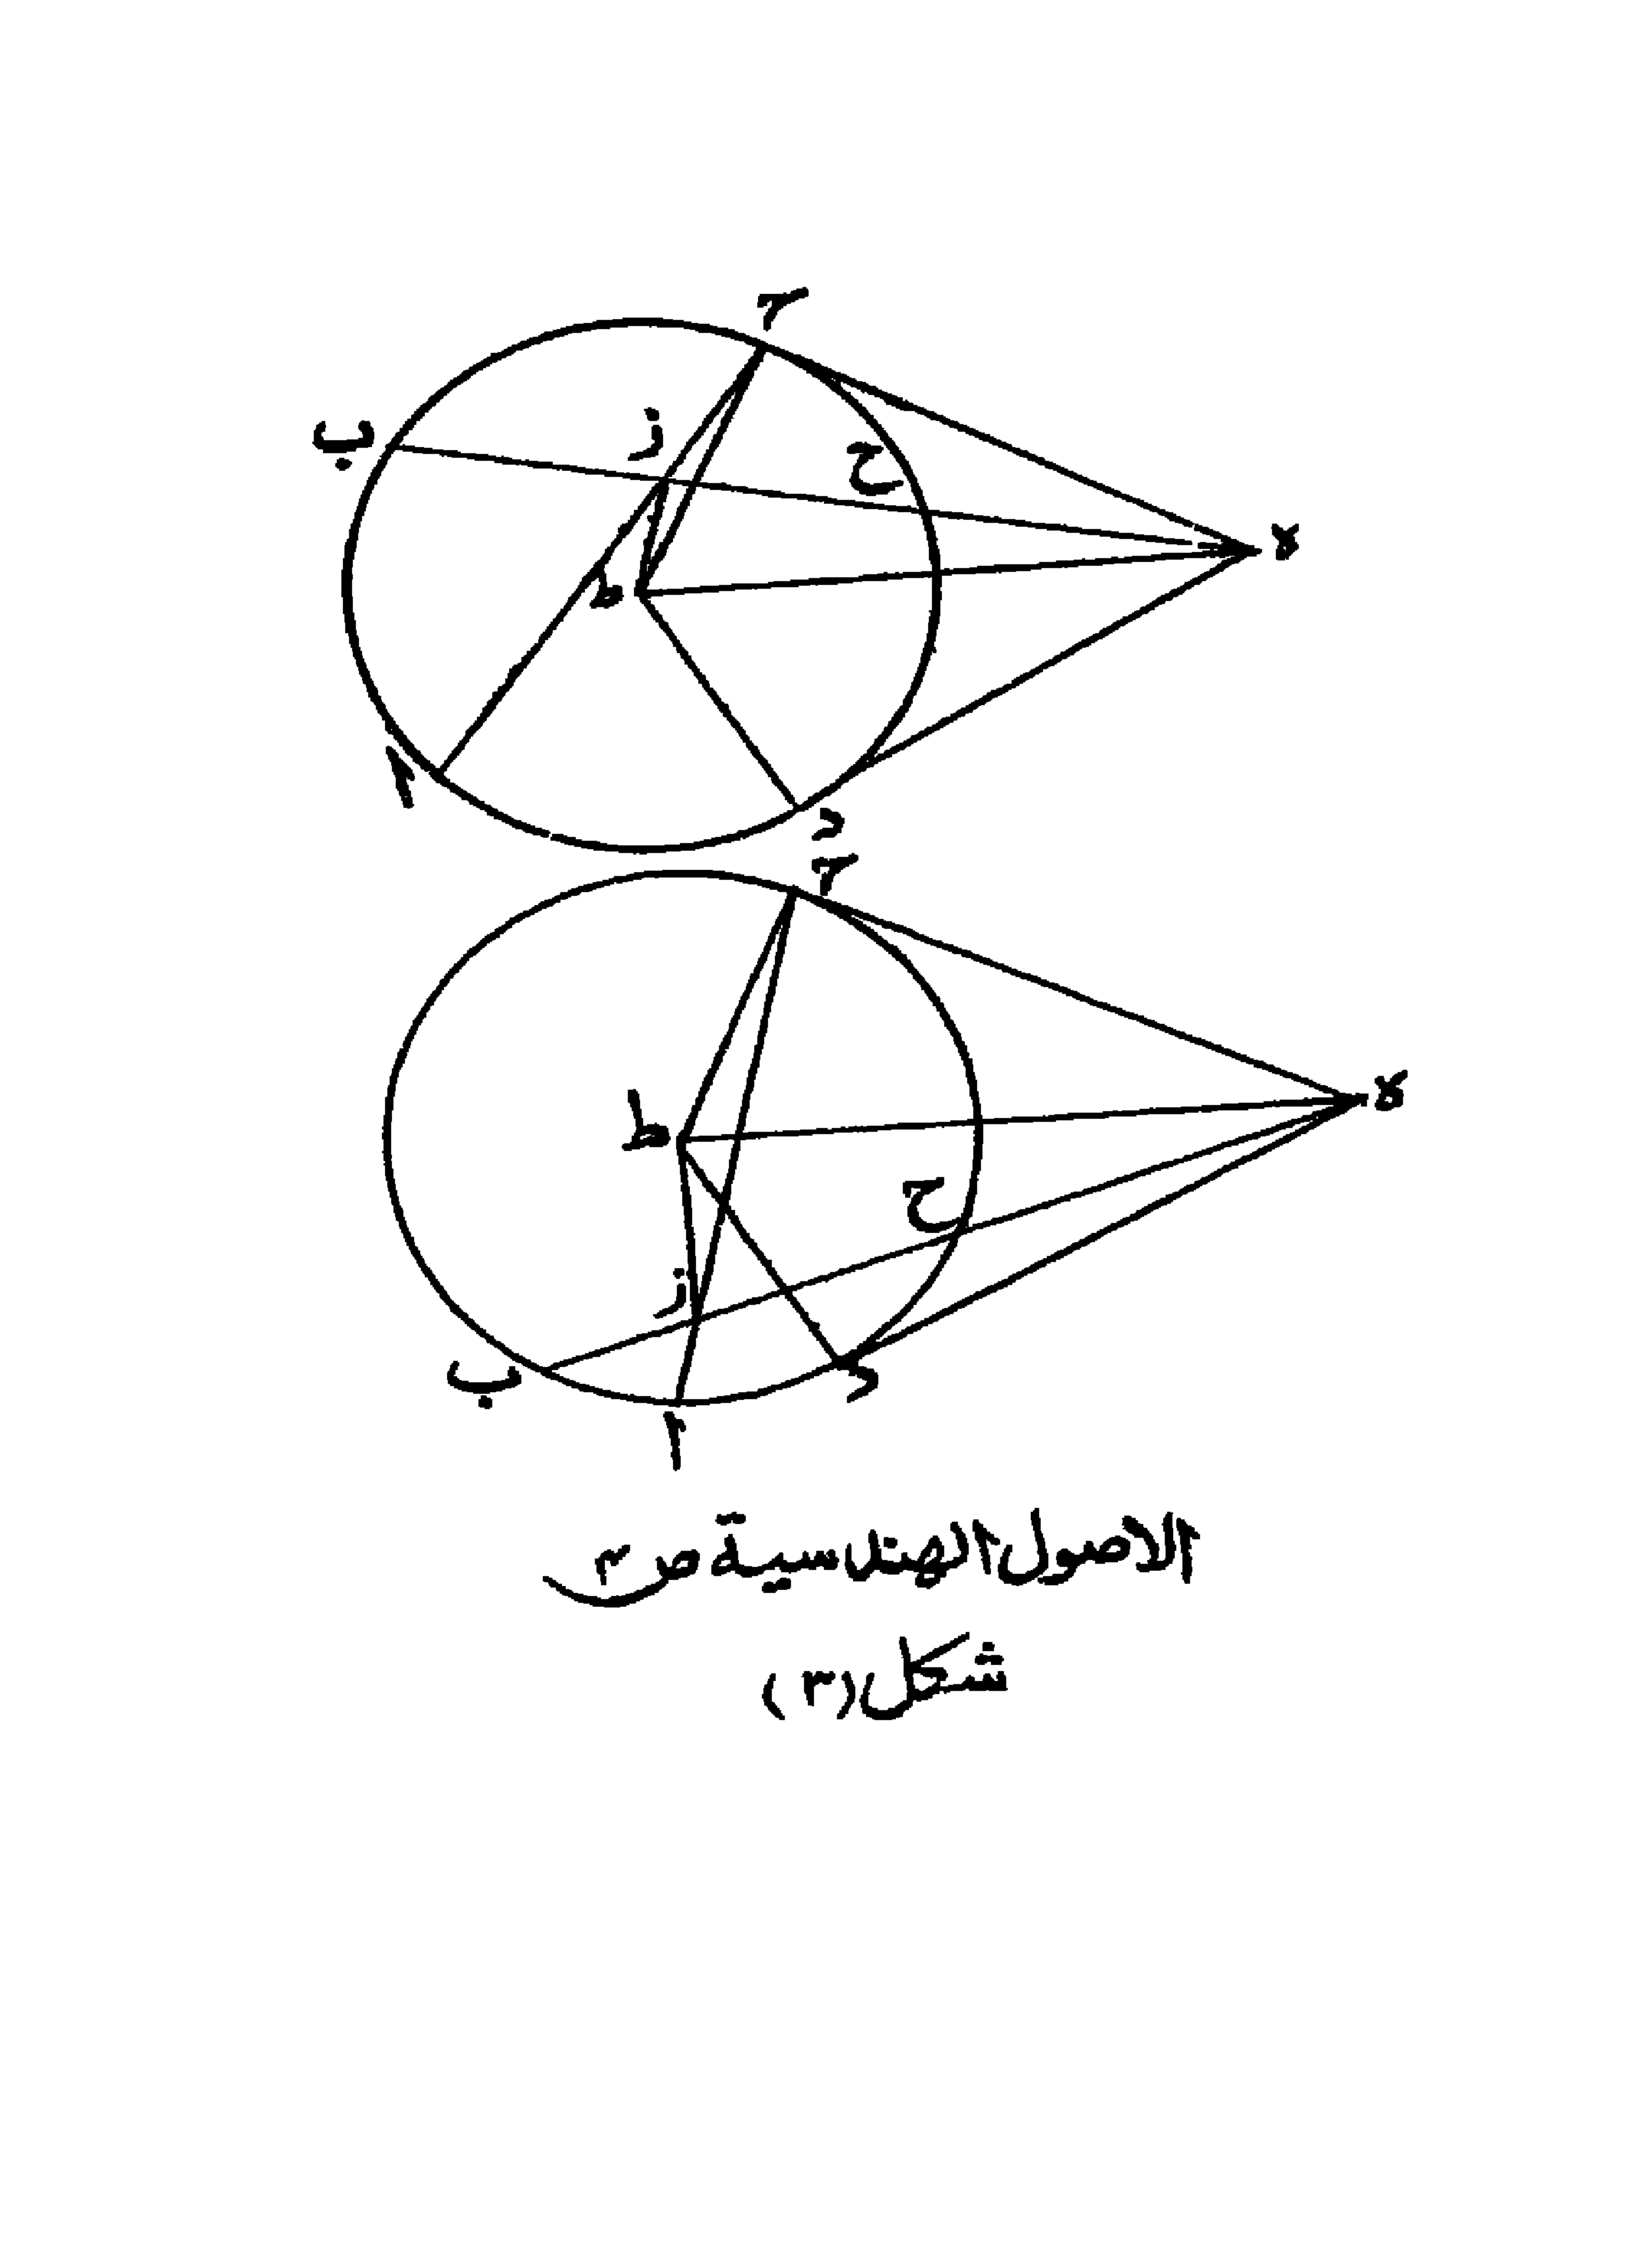 ح
ب
ز
ح
ه
ط
ا
د
ح
ه
ط
ح
ز
ب
د
ا
الاصول الهندسية ص ٣
شكل (٣)